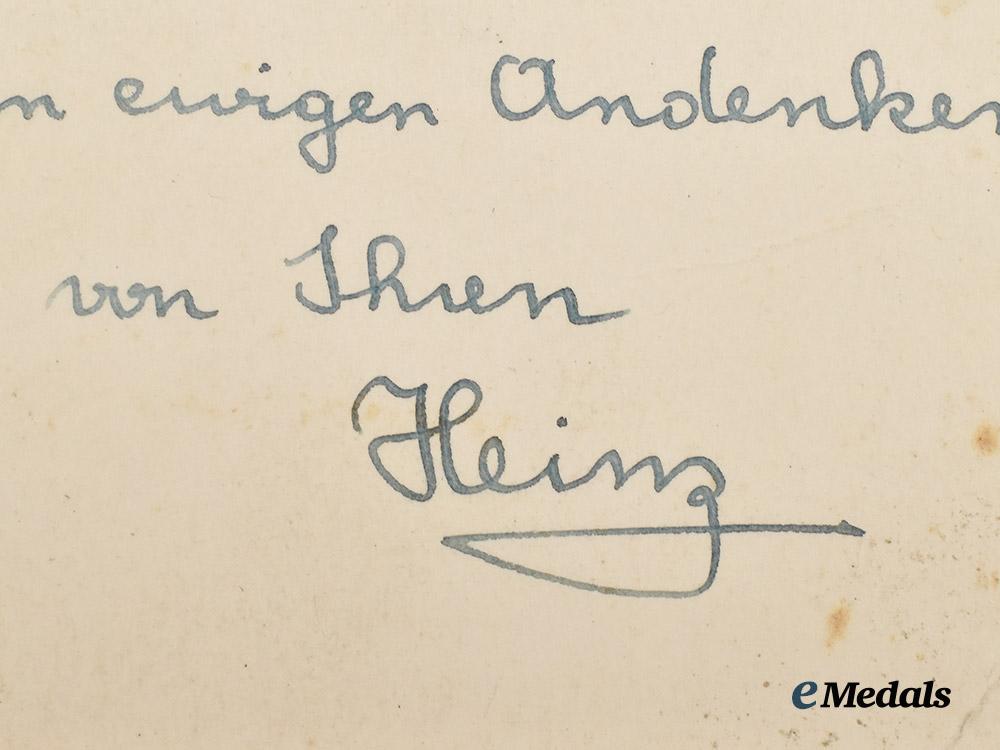 n ewigen Andenken
von Ihren
Heinz
eMedals